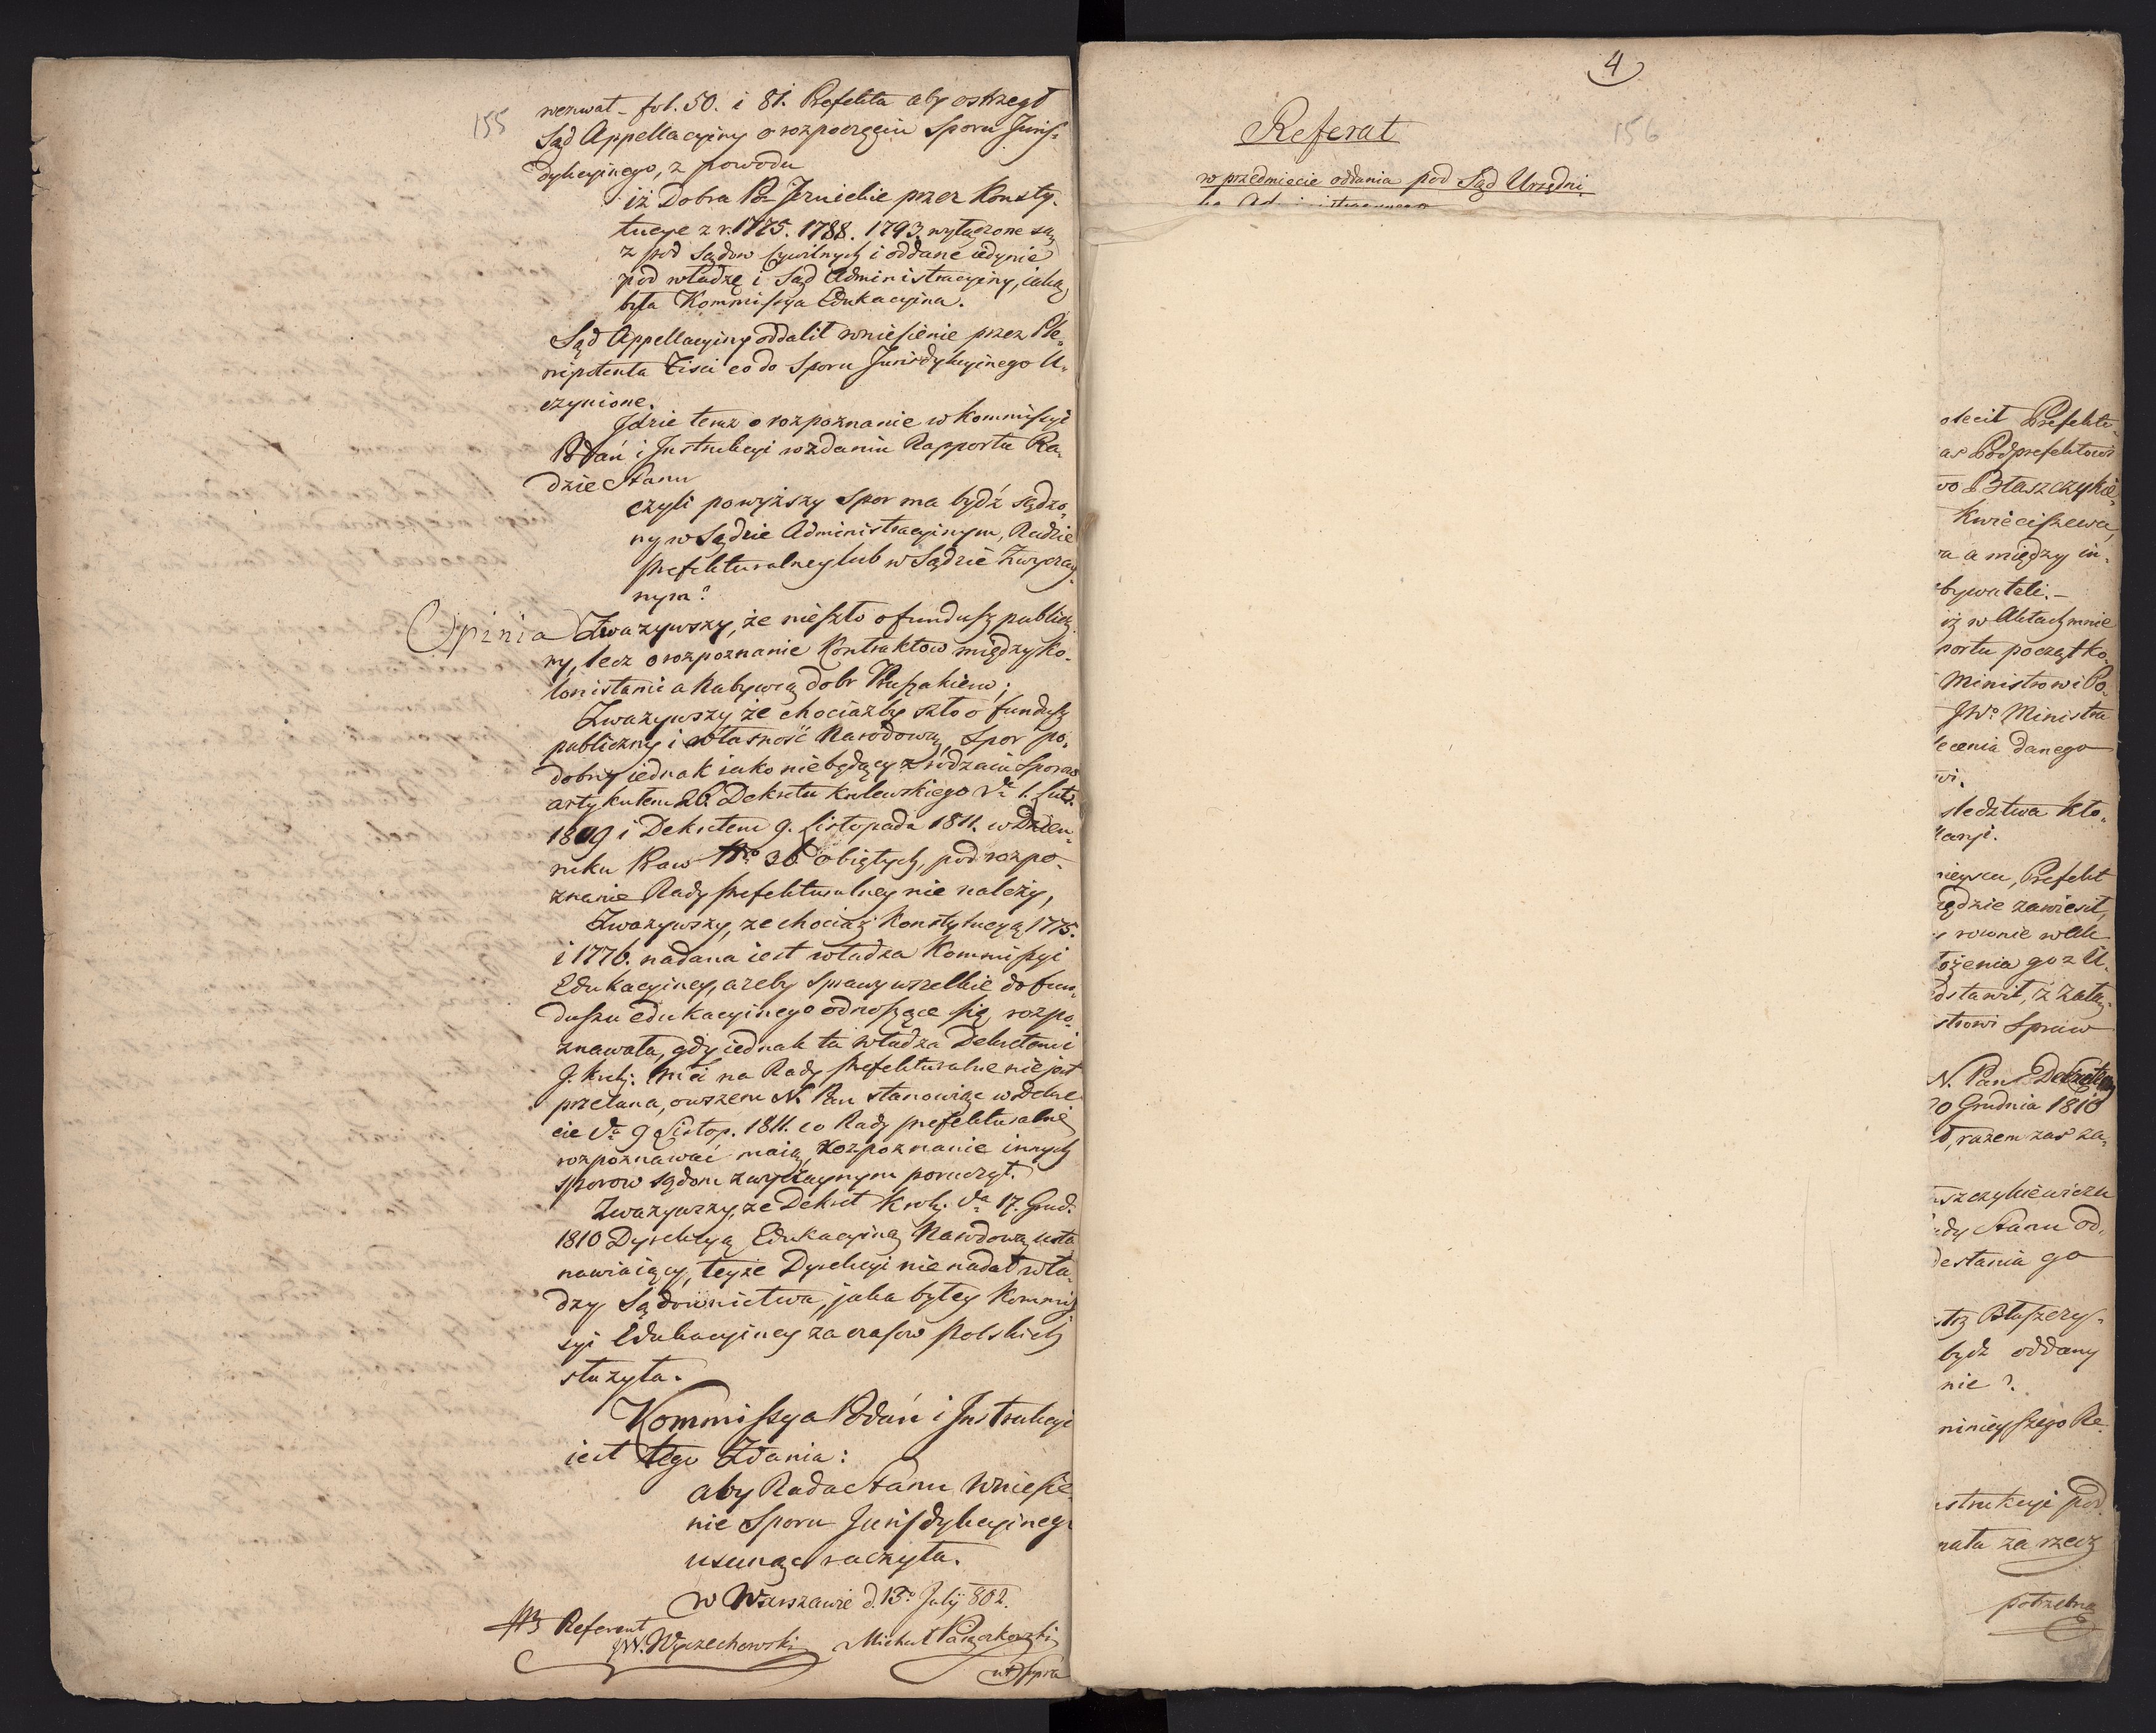 155
wezwał - fol. 50. i 81. Prefekta aby ostrzegł
Sąd Appellacyiny o rozpoczęciu Sporu Juris-
dykcyinego, z powodu
iż Dobra Po-Jezuickie przez Konsty-
tucye z r. 1775. 1788. 1793. wyłączone są
z pod Sądow Cywilnych i oddane iedynie
pod władzę i Sąd Administracyiny, iaką
była Kommissya Edukacyina.
Sąd Appellacyiny oddalił wniesienie przez Ple-
nipotenta co do Sporu Jurisdykcyinego U-
czynione.
Jdzie teraz o rozpoznanie w Kommissyi
Podań i Jnstrukcyi w zdaniu Rapportu Ra-
dzie Stanu
czyli powyższy Spor ma bydź sądzo-
ny w Sądzie Administracyinym, Radzie
Prefekturalney lub w Sądzie Zwyczay-
nym?
Opinia Zważywszy, że nieszło o fundusz publicz-
ny, lecz o rozpoznanie Kontraktow między Ko-
lonistami a Nabywcą dobr
Zważywszy że chociażby szło o fundusz
publiczny i własność Narodową, Spor po-
dobny iednak iako niebędący z rodzaiu Sporow
artykułem 26. Dekretu Krolewskiego da 1. Lut.
1809 i Dekretem 9. Listopada 1811. w Dzien-
niku Praw No 36 obiętych, pod rozpo-
znanie Rady Prefekturalney nie należy,
Zważywszy, ze chociaż Konstytucyą 1775.
i 1776. nadana iest władza Kommissyi
Edukacyiney, azeby Sprawy wszelkie do fun-
duszu edukacyinego odnoszące się, rozpo-
znawała, gdy iednak ta władza Dekretami
J. Krolj. Mci na Rady Prefekturalne nie jest
przelana, owszem N. Pan stanowiąc w Dekre-
cie da 9 Listop. 1811. co Rady prefekturalne
rozpoznawać maią, rozpoznanie innych
sporow sądom zwyczaynym poruczył.
Zważywszy, że Dekret Krolj. da 17. Grud.
1810 Dyrekcyą Edukacyiną Narodową usta
nawiaiący, teyże Dyrekcyi nie nadał wła-
dzy Sądownictwa, jaka byłey Kommis
syi Edukacyiney za czasow Polskich
służyła.
Kommissya Podań i Jnstrukcyi
iest tego Zdania:
aby Rada Stanu Wniesie-
nie Sporu Jurisdykcyinego
usunąć raczyła.
w Warszawie d. 13o Julij 802.
Referent
Wyczechowski Michał
ut supra
4
156
Referat
w przedmiocie oddania pod Sąd Urzędni-
olecił Prefekto-
as Podprefektowi
wo Błaszczykie
Kwieciszewa,
ra a między in-
bywateli. -
iż w Aktach mnie
portu początko-
Ministrowi Po-
JWo Ministra
lecenia danego
wi.
sledztwa kto-
niejscu, Prefekt
rzędzie zawiesił,
rownie w ak
ożenia go z U-
dstawił, i załą-
strowi Spraw
N. Pan Dekretem
20 Grudnia 1810
ł, razem zaś za-
szczykiewicza
ady Stanu od-
desłania go
strz Błaszczy-
bydź oddany
nie?
ninieyszego Re-
strukcyi pod
nała za rzecz
potrzebną